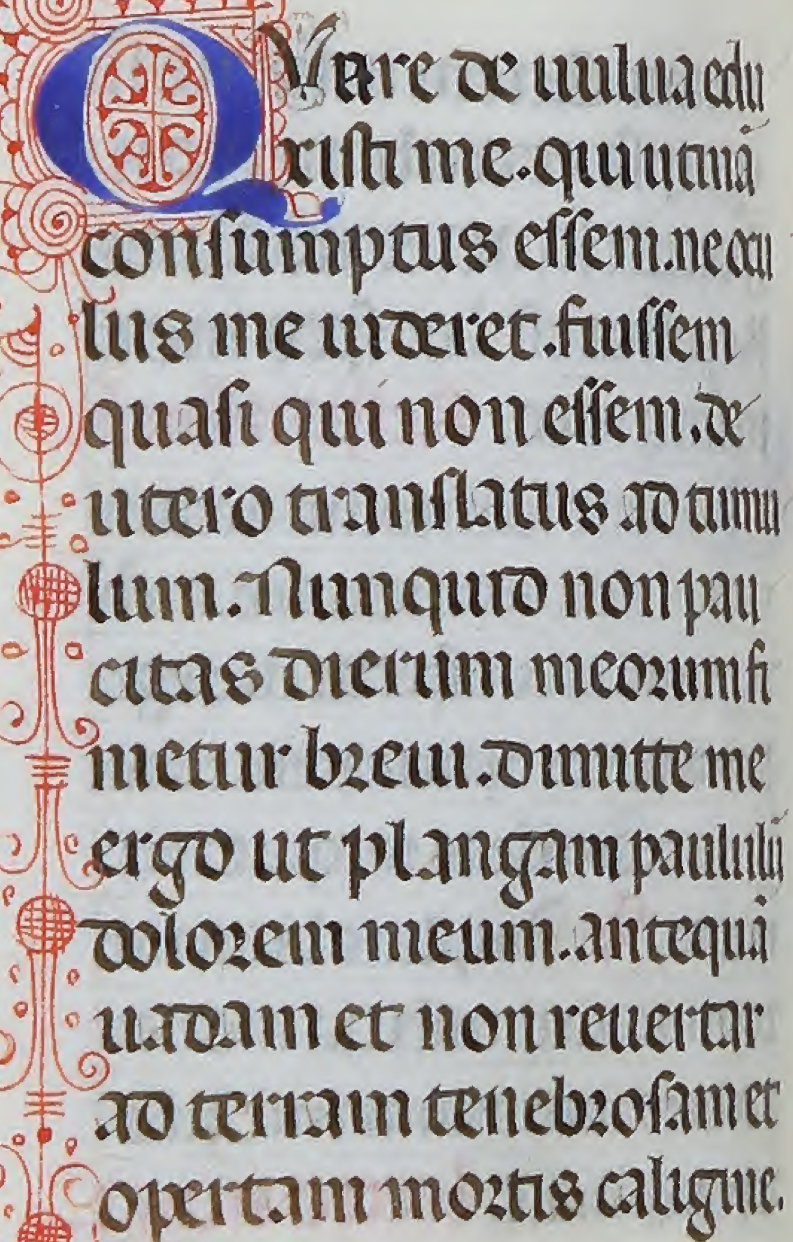 QVare de uulua edu
xisti me. qui utinā
consumptus essem. ne ocu
lus me uideret. fiuissem
quasi qui non essem. de
utero translatus ad tumu
lum. Nunquid non pau
citas dierum meorum fi
nietur breui. dimitte me
ergo ut plangam paululū
dolorem meum. antequā
uadam et non reuertar
ad terram tenebrosam et
opertam mortis caligine.